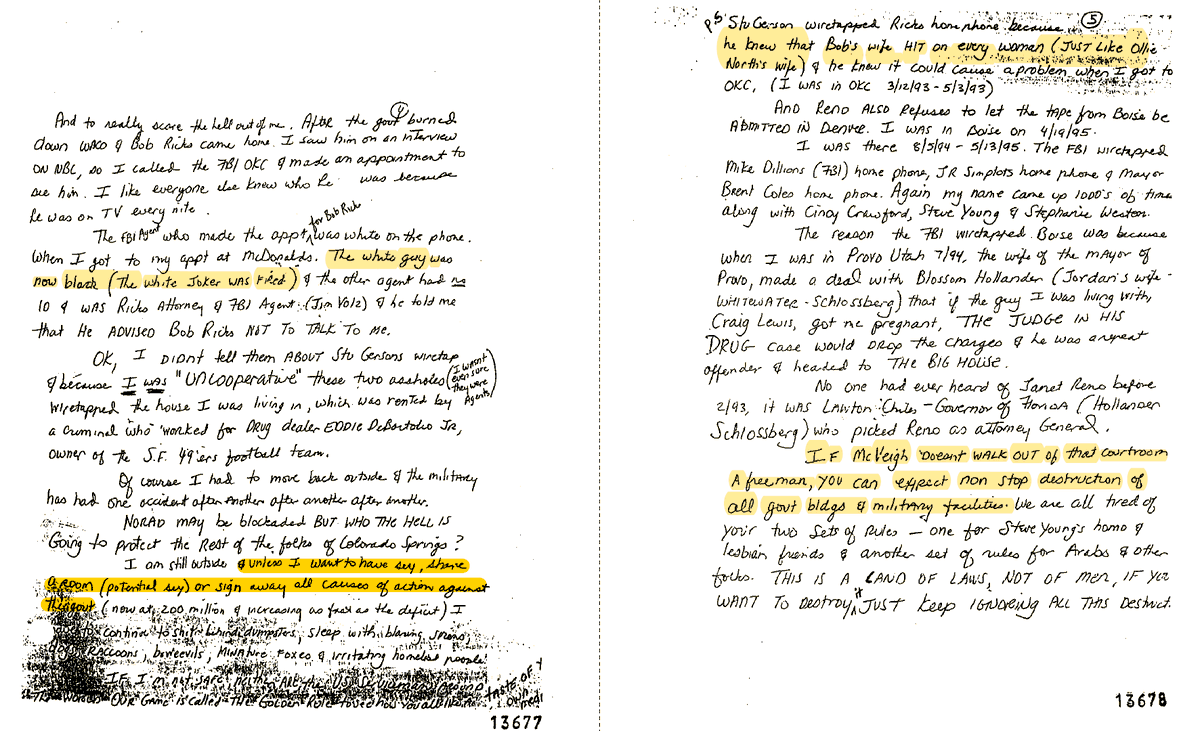 ④
And to really scare the hell out of me. After the govt burned
down WACO & Bob Ricks came home. I saw him on an interview
on NBC, so I called the FBI OKC & made an appointment to
see him. I like everyone else knew who he was because
he was on TV every nite.
for Bob Ricks
The FBI Agent who made the appt was white on the phone.
When I got to my appt at McDonalds. The white guy was
now black (The white Joker was Fired) & the other agent had no
ID & was Ricks Attorney & FBI Agent (Jim Volz) & he told me
that He ADVISED Bob Ricks NOT TO TALK TO ME.
OK, I DIDNT tell them ABOUT Stu Gersons wiretap
& because I was "UNCOOPERATIVE" these two assholes (I WASNT even sure they were Agents)
wiretapped the house I was living in, which was rented by
a criminal who worked for DRUG dealer EDDIE DeBartolio Jr,
owner of the S.F. 49'ers football team.
Of course I had to move back outside & the military
has had one accident after another after another after another.
NORAD may be blockaded BUT WHO THE HELL IS
Going to protect the Rest of the folks of Colorado Springs?
I am still outside & unless I want to have sex, share
a room (potential sex) or sign away all causes of action against
this govt (now at 200 million & increasing as fast as the deficit) I
continue to shit behind dumpsters, sleep with blaring sirens,
RACCOONS, boweevils, MINATURE Foxes & irritating homeless people.
IF I m not safe neither ARE the
OUR Game is called THE GOLDEN RULE
taste of
13677
⑤
PS Stu Gerson wiretapped Ricks home phone because
he knew that Bob's wife HIT on every woman (JUST LIKE Ollie
North's wife) & he knew it could cause a problem when I got to
OKC, (I WAS IN OKC 3/12/93 - 5/3/93)
AND RENO ALSO Refuses to let the tape from Boise be
ADMITTED IN DENVER. I WAS IN Boise ON 4/19/95.
I WAS there 8/5/94 - 5/13/95. The FBI wiretapped
Mike Dillions (FBI) home phone, JR Simplots home phone & Mayor
Brent Coles home phone. Again my name came up 1000's of time
along with Cindy Crawford, Steve Young & Stephanie Weston.
The reason the FBI wiretapped. Boise was because
when I was in Provo Utah 7/94, the wife of the mayor of
Provo, made a deal with Blossom Hollander (Jordan's wife -
WHITEWATER - Schlossberg) that if the guy I was living with,
Craig Lewis, got me pregnant, THE JUDGE IN HIS
DRUG case would DROP the charges & he was a repeat
offender & headed to THE BIG HOUSE.
No one had ever heard of Janet Reno before
2/93, it was Lawton Chiles - Governor of Florida (Hollander
Schlossberg) who picked Reno as attorney General.
IF McVeigh Doesnt WALK OUT of that courtroom
A free man, you can expect non stop destruction of
all govt bldgs & military facilities. We are all tired of
your two sets of rules — one for Steve Young's homo &
lesbian friends & another set of rules for Arabs & other
folks. THIS IS A LAND OF LAWS, NOT OF MEN, IF YOU
WANT TO DESTROY it JUST KEEP IGNORING ALL THIS DESTRUCT.
13678